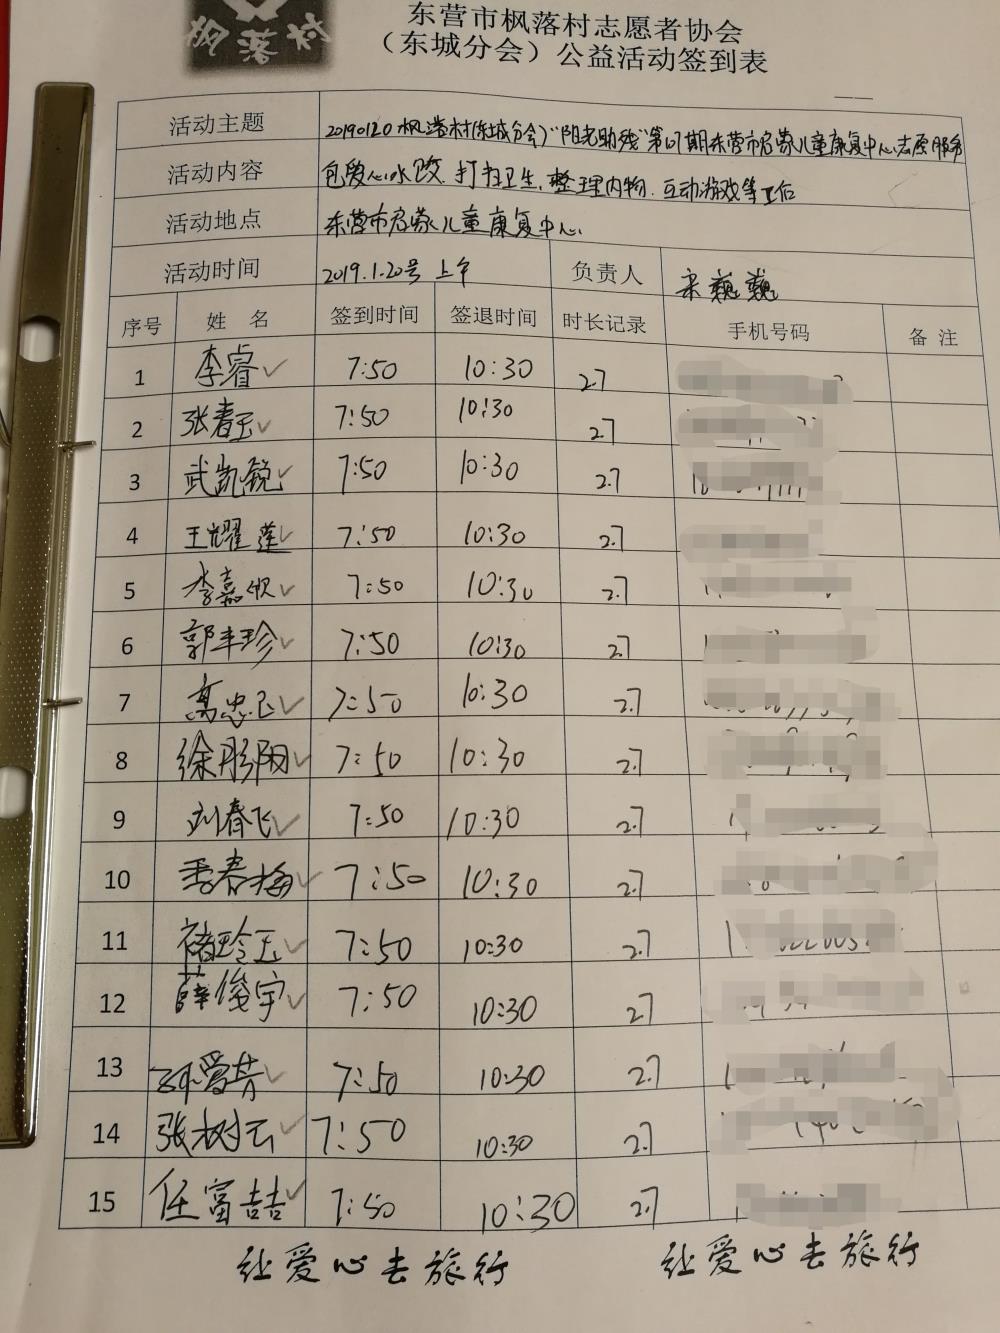 枫落村
东营市枫落村志愿者协会
（东城分会）公益活动签到表
活动主题 20190120枫落村(东城分会)"阳光助残"第 期东营市启蒙儿童康复中心志愿服务
活动内容 包爱心水饺、打扫卫生、整理内物、互动游戏等工作
活动地点 东营市启蒙儿童康复中心
活动时间 2019.1.20号 上午 负责人 宋巍巍
序号 姓 名 签到时间 签退时间 时长记录 手机号码 备 注
1 李睿 7:50 10:30 2.7
2 张春玉 7:50 10:30 2.7
3 武凯锐 7:50 10:30 2.7
4 王耀莲 7:50 10:30 2.7
5 李嘉欣 7:50 10:30 2.7
6 郭丰珍 7:50 10:30 2.7
7 高忠飞 7:50 10:30 2.7
8 徐彤阳 7:50 10:30 2.7
9 刘春飞 7:50 10:30 2.7
10 季春梅 7:50 10:30 2.7
11 褚玲玉 7:50 10:30 2.7
12 薛俊宇 7:50 10:30 2.7
13 孙爱芳 7:50 10:30 2.7
14 张树云 7:50 10:30 2.7
15 任富喆 7:50 10:30 2.7
让爱心去旅行 让爱心去旅行